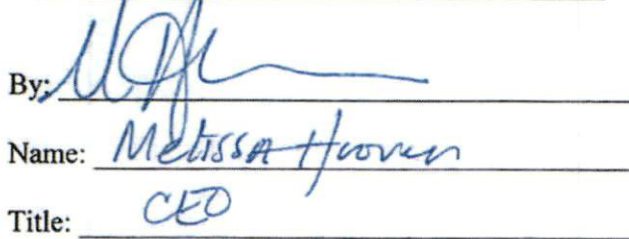 By:
Name: Melissa Hoover
Title: CEO